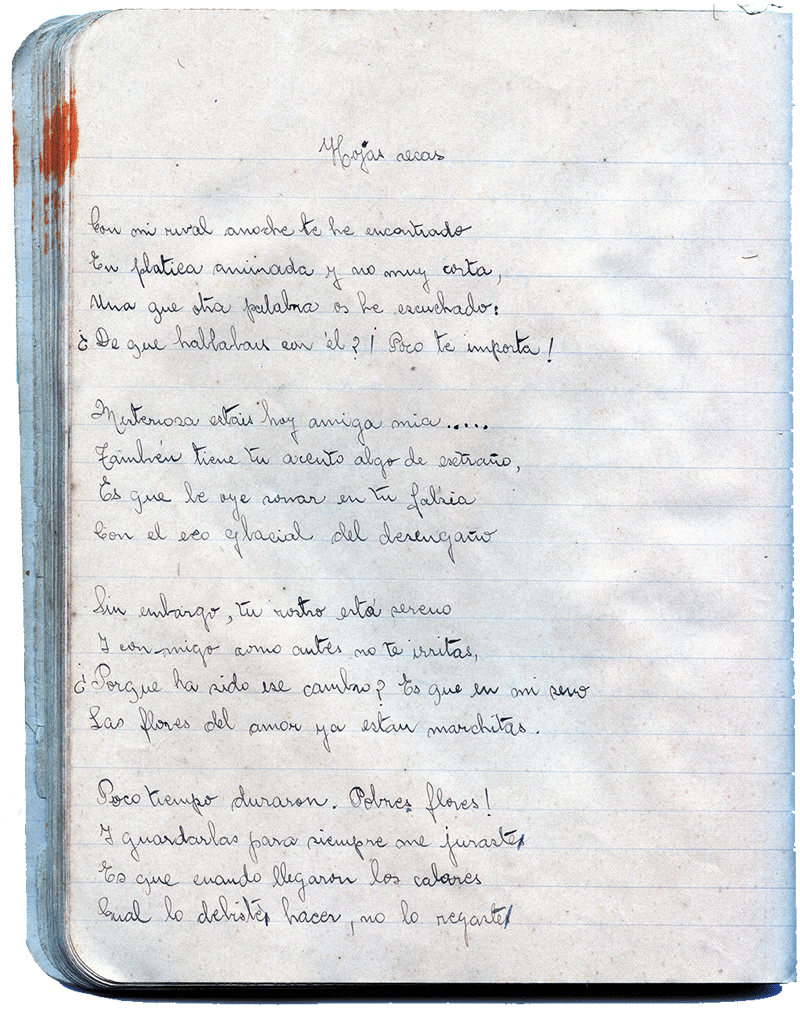 Hojas secas
Con mi rival anoche te he encontrado
En platica animada y no muy corta,
Una que otra palabra os he escuchado:
¿De que hablabais con él? ¡Poco te importa!
Misteriosa estais hoy amiga mia.....
También tiene tu acento algo de extraño,
Es que le oye sonar en tu falsia
Con el eco glacial del desengaño
Sin embargo, tu rostro está sereno
I con migo como antes no te irritas,
¿Porque ha sido ese cambio? Es que en mi seno
Las flores del amor ya estan marchitas.
Poco tiempo duraron. Pobres flores!
I guardarlas para siempre me juraste
Es que cuando llegaron los calores
Cual lo debiste hacer, no lo regaste